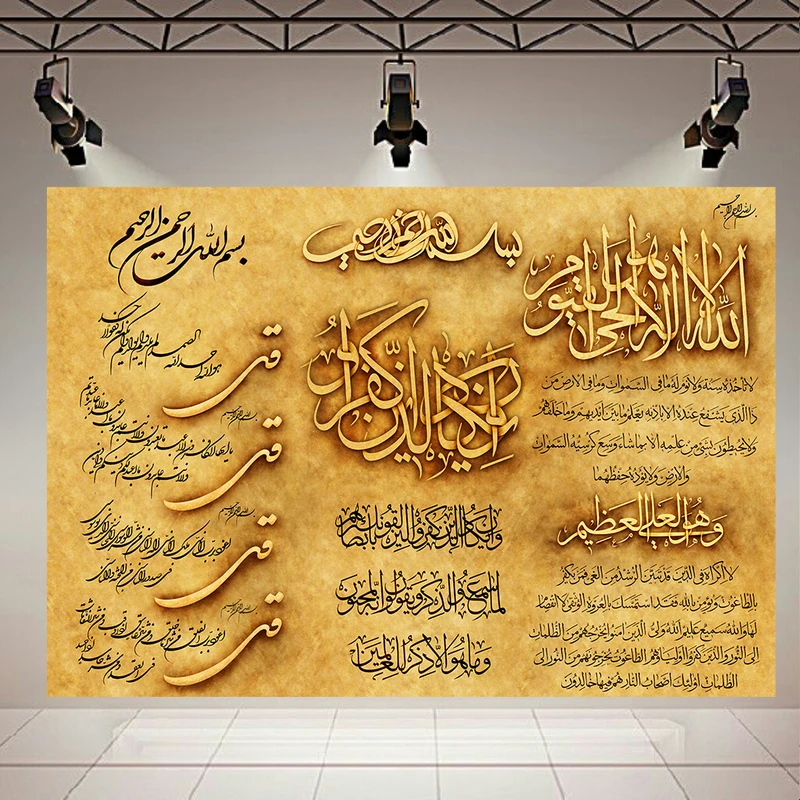 بسم الله الرحمن الرحیم
الله لا اله الا هو الحی القیوم
لا تاخذه سنه ولا نوم له ما فی السموات وما فی الارض من
ذا الذی یشفع عنده الا باذنه یعلم ما بین ایدیهم وما خلفهم
ولا یحیطون بشئ من علمه الا بما شاء وسع کرسیه السموات
والارض ولا یؤده حفظهما
وهو العلی العظیم
لا اکراه فی الدین قد تبین الرشد من الغی فمن یکفر
بالطاغوت ویؤمن بالله فقد استمسک بالعروة الوثقی لا انفصام
لها والله سمیع علیم الله ولی الذین امنوا یخرجهم من الظلمات
الی النور والذین کفروا اولیاؤهم الطاغوت یخرجونهم من النور الی
الظلمات اولئک اصحاب النار هم فیها خالدون
بسم الله الرحمن الرحیم
وان یکاد الذین کفروا
وان یکاد الذین کفروا لیزلقونک بابصارهم
لما سمعوا الذکر ویقولون انه لمجنون
وما هو الا ذکر للعالمین
بسم الله الرحمن الرحیم
قل
هو الله احد الله الصمد لم یلد ولم یولد ولم یکن له کفوا احد
بسم الله الرحمن الرحیم
قل
یا ایها الکافرون لا اعبد ما تعبدون
بسم الله الرحمن الرحیم
قل
اعوذ برب الناس ملک الناس اله الناس من شر الوسواس الخناس الذی یوسوس
فی صدور الناس من الجنة والناس
بسم الله الرحمن الرحیم
قل
اعوذ برب الفلق من شر ما خلق ومن شر غاسق اذا وقب ومن شر النفاثات
فی العقد ومن شر حاسد اذا حسد